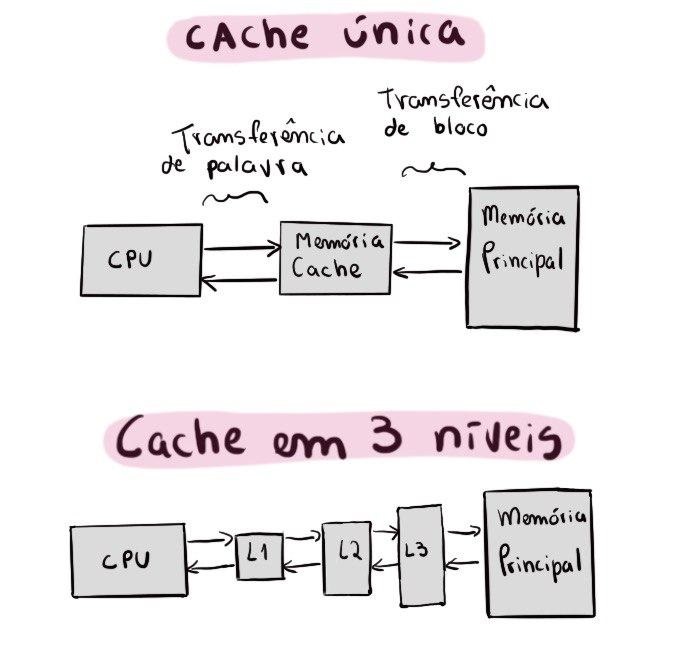 CAche única
Transferência
de bloco
Transferência
de palavra
CPU
Memória
Cache
Memória
Principal
Cache em 3 níveis
CPU
L1
L2
L3
Memória
Principal